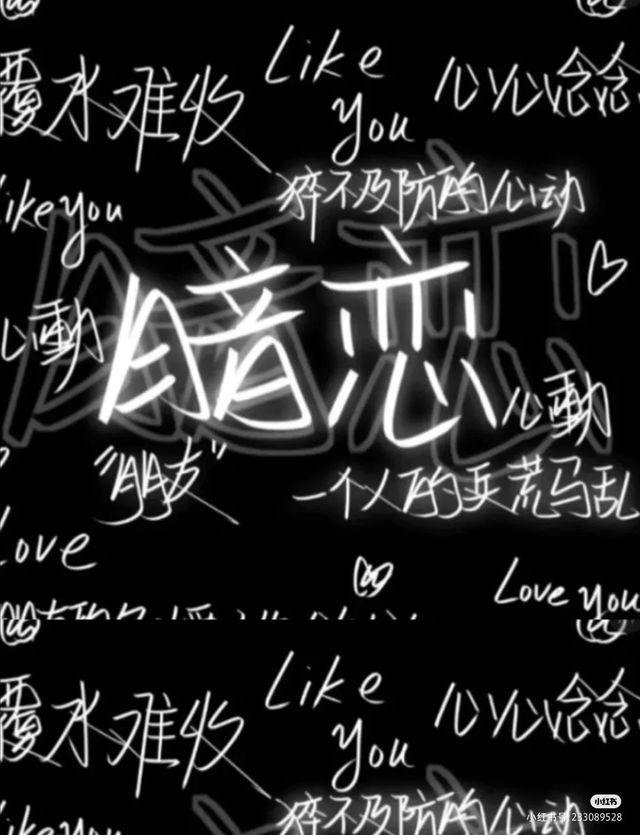 Like
覆水难收
心心念念
you
猝不及防的心动
Like you
暗恋
心動
心動
"朋友"
一个人的兵荒马乱
Love
Love you
Like
覆水难收
心心念念
you
Like you
猝不及防的心动
小红书
小红书号:233089528